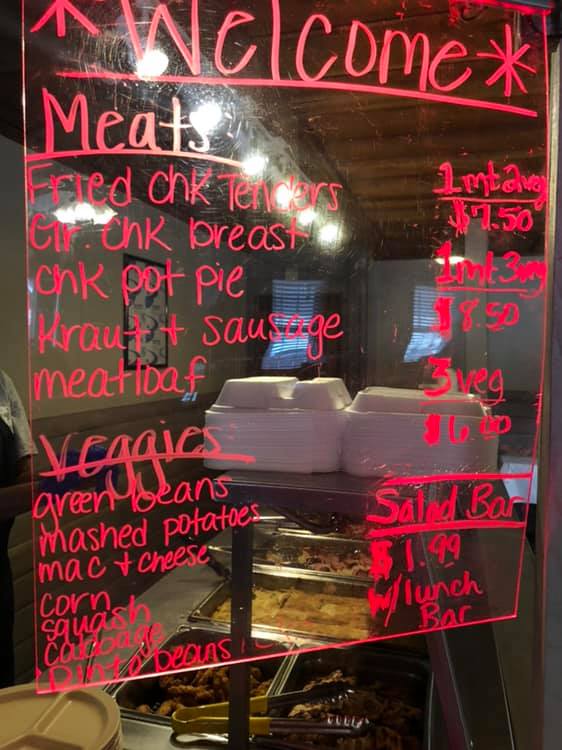 *Welcome*
Meats:
Fried chk Tenders
Gr. chk breast
chk pot pie
Kraut + sausage
meatloaf
Veggies:
green beans
mashed potatoes
mac + cheese
corn
squash
cabbage
Pinto beans
1 mt 2 veg
$7.50
1 mt 3 veg
$8.50
3 veg
$6.00
Salad Bar
$1.99
w/lunch
Bar